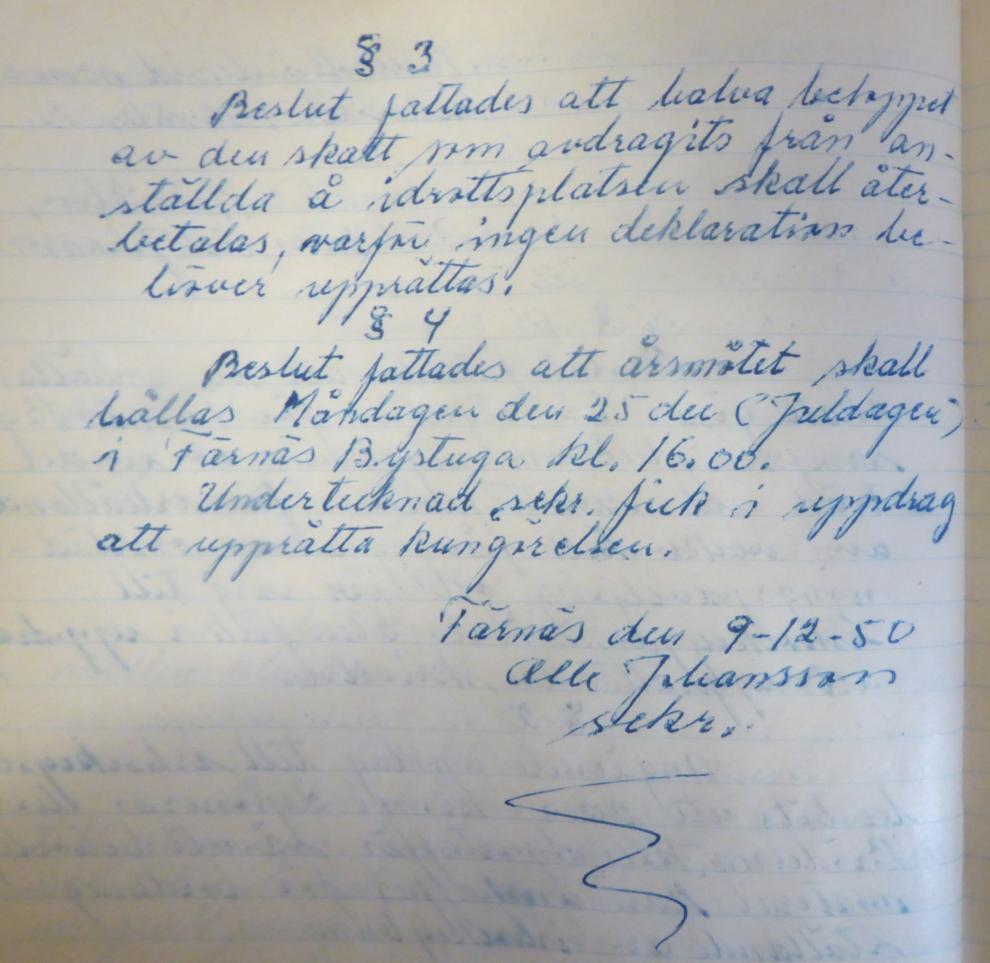 § 3
Beslut fattades att halva beloppet
av den skatt som avdragits från an-
ställda å idrottsplatsen skall åter-
betalas, varför ingen deklaration be-
höver upprättas.
§ 4
Beslut fattades att årsmötet skall
hållas Måndagen den 25 dec (Juldagen)
i Färnäs Bystuga kl. 16.00.
Undertecknad sekr. fick i uppdrag
att upprätta kungörelsen.
Färnäs den 9-12-50
Olle Johansson
sekr.